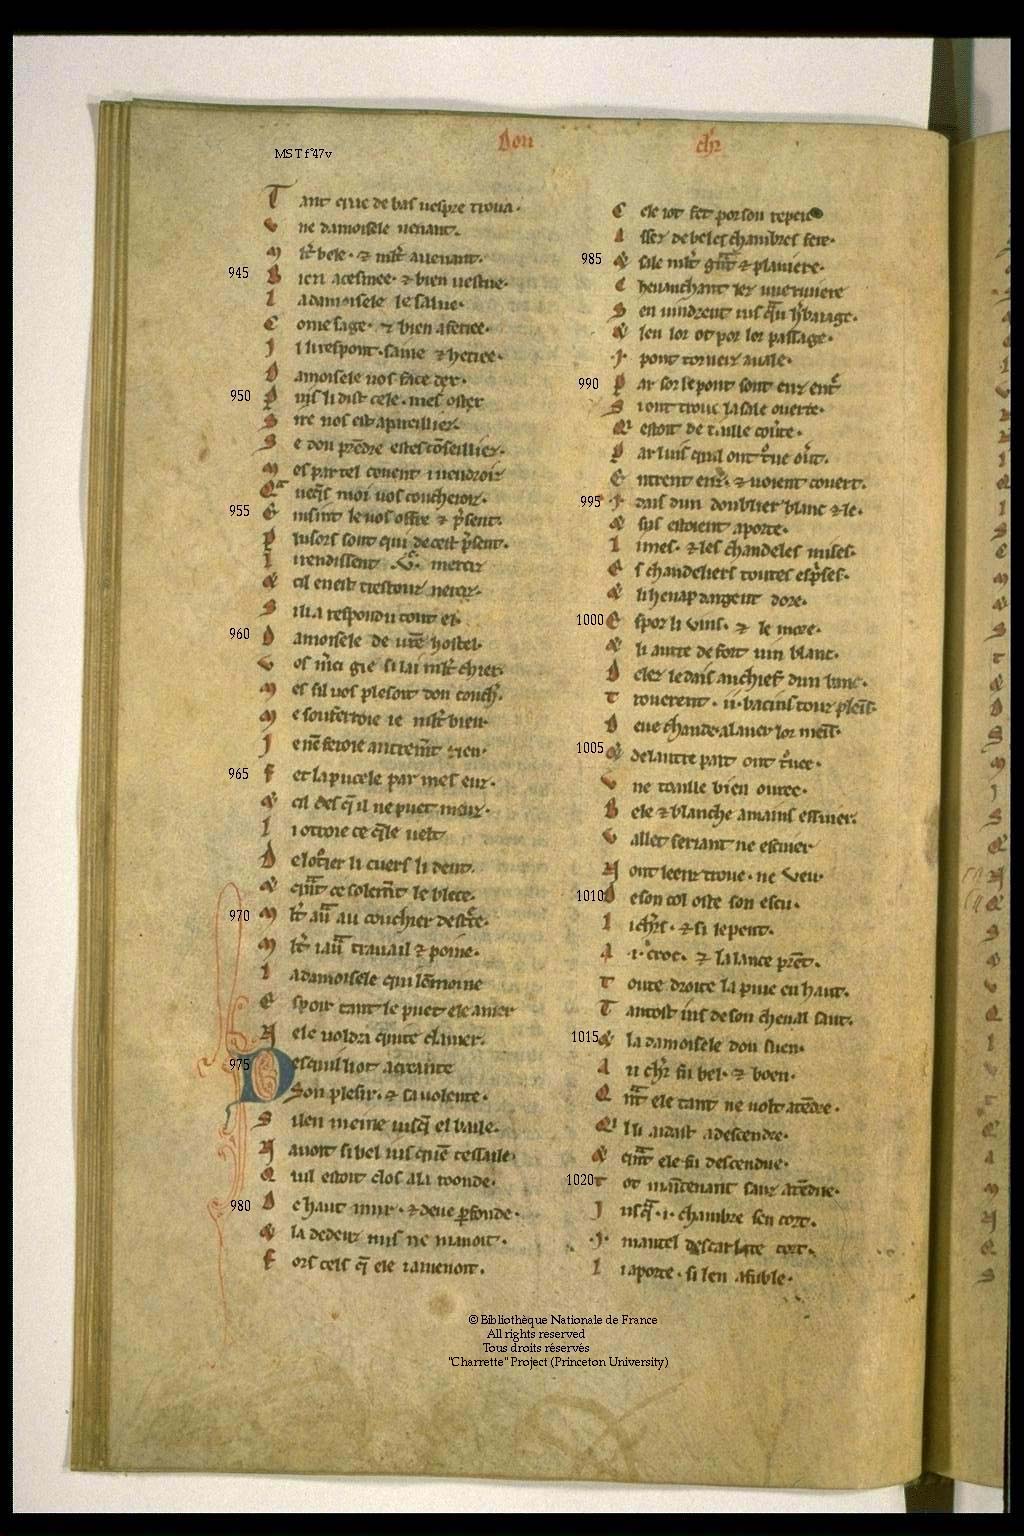 Don
chr̄
MS T f°47v
T ant que de bas uespre troua.
V ne damoisele uenant.
M lt̄ bele. ⁊ mlt̄ auenant.
945
B ien acesmee. ⁊ bien uestue.
L adamoisele le salue.
C ome sage. ⁊ bien afetiee.
I l li respont. saine ⁊ hetiee.
D amoisele uos face dex.
950
P uis li dist cele. mes ostex
S ire uos est apareilliez.
S e don prēdre estes cōseilliez.
M es par tel couent i uendroiz
Q a uecq̄s moi uos coucheroiz.
955
E insint le uos offre ⁊ p̄sent.
P lusors sont qui de cest p̄sent.
L i rendissent .v.c. merciz
& cil en est trestouz nerciz.
S i li a respondu tout el.
960
D amoisele de ur̄e hostel.
V os m̄ci gie si lai mlt̄ chier.
M es sil uos plesoit dou couch̄.
M e souferroie ie mlt̄ bien
I e nē feroie autremt̄ rien.
965
F et la pucele par mes euz.
& cil des q̄ il ne puet mieuz.
L i otroie ce q̄le uelt
D e lotier li cuers li deut.
& qn̄t ce solemt̄ le blece.
970
M lt̄ aur̄a au couchier destrece.
M lt̄ i aura trauail ⁊ poine.
L adamoisele qui lēmoine
E spoir tant le puet ele amer
N ele uoldra quite clamer.
975
D esquil li ot acreante
Son plesir. ⁊ sa uolente.
S ilen meine iusq̄ el baile.
N auoit si bel iusquē tessaile.
Q uil estoit clos a la roonde.
980
D e haut mur. ⁊ deue p̄fonde.
& la dedenz nus ne manoit.
F ors cels q̄ ele i amenoit.
C ele i ot fet por son repeire
A ssez de beles chambres fere.
985
& sale mlt̄ gn̄t ⁊ planiere.
C heuauchant lez une riuiere
S en uindrent iusq̄u h̄baiage.
& len lor ot por lor passage.
.I. pont torneiz auale.
990
P ar sor le pont sont enz entre
S i ont troue la sale ouerte.
Q i estoit de tiulle couu̇te.
P ar luis quil ont troue ouu̇t.
E ntrent enz. ⁊ uoient couert.
995
.I. dais dun doublier blanc ⁊ le.
& sus estoient aporte.
L i mes. ⁊ les chandeles mises.
E s chandeliers toutes esp̄ses.
& li henap dargent dore.
1000
E spor li vins. ⁊ le more.
& li autre de fort uin blanc.
D elez le dais au chief dun banc.
T rouerent .ii. bacins touz pleīs.
D eue chaude a lauer lor meīs.
1005
& de lautre part ont troue.
V ne toaille bien ouree.
B ele ⁊ blanche a mains essuier.
V allet seriant ne escuier
N ont leenz troue. ne veu
1010
D e son col oste son escu.
L i chrs̄. ⁊ si le pent.
A .i. croc. ⁊ la lance prēt.
T oute droite la pme en haut.
T antost ius de son cheual saut.
1015
& la damoisele dou suen.
A u chr̄ fu bel. ⁊ boen.
Q nt̄ ele tant ne uolt atēdre.
Q i li aidast a descendre.
& qnt̄ ele fu descendue.
1020
T ot maītenant sanz atēdue.
I usq̄. i. chambre sen cort.
.I. mantel descarlate cort.
L i aporte. si len afuble.
© Bibliothèque Nationale de France
All rights reserved
Tous droits réservés
"Charrette" Project (Princeton University)